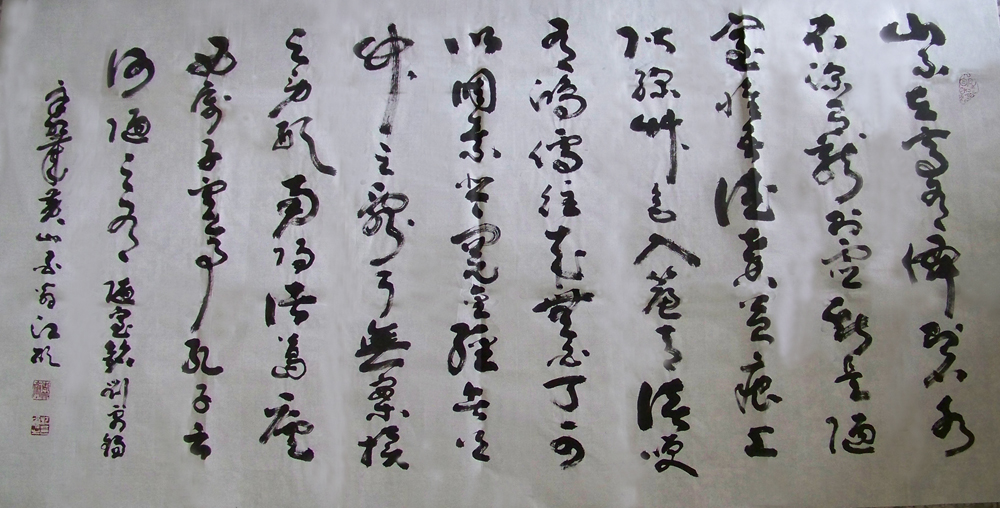 山不在高有僊則名水
不深有龍則靈斯是陋
室惟吾德馨苔痕上
階綠艸色入簾青談咲
有鴻儒往來無白丁可
以調素琴閱金經無絲
竹之亂耳無案牘
之勞形南陽諸葛廬
西蜀子雲亭孔子云
何陋之有 陋室銘劉禹錫
年黃山翁江